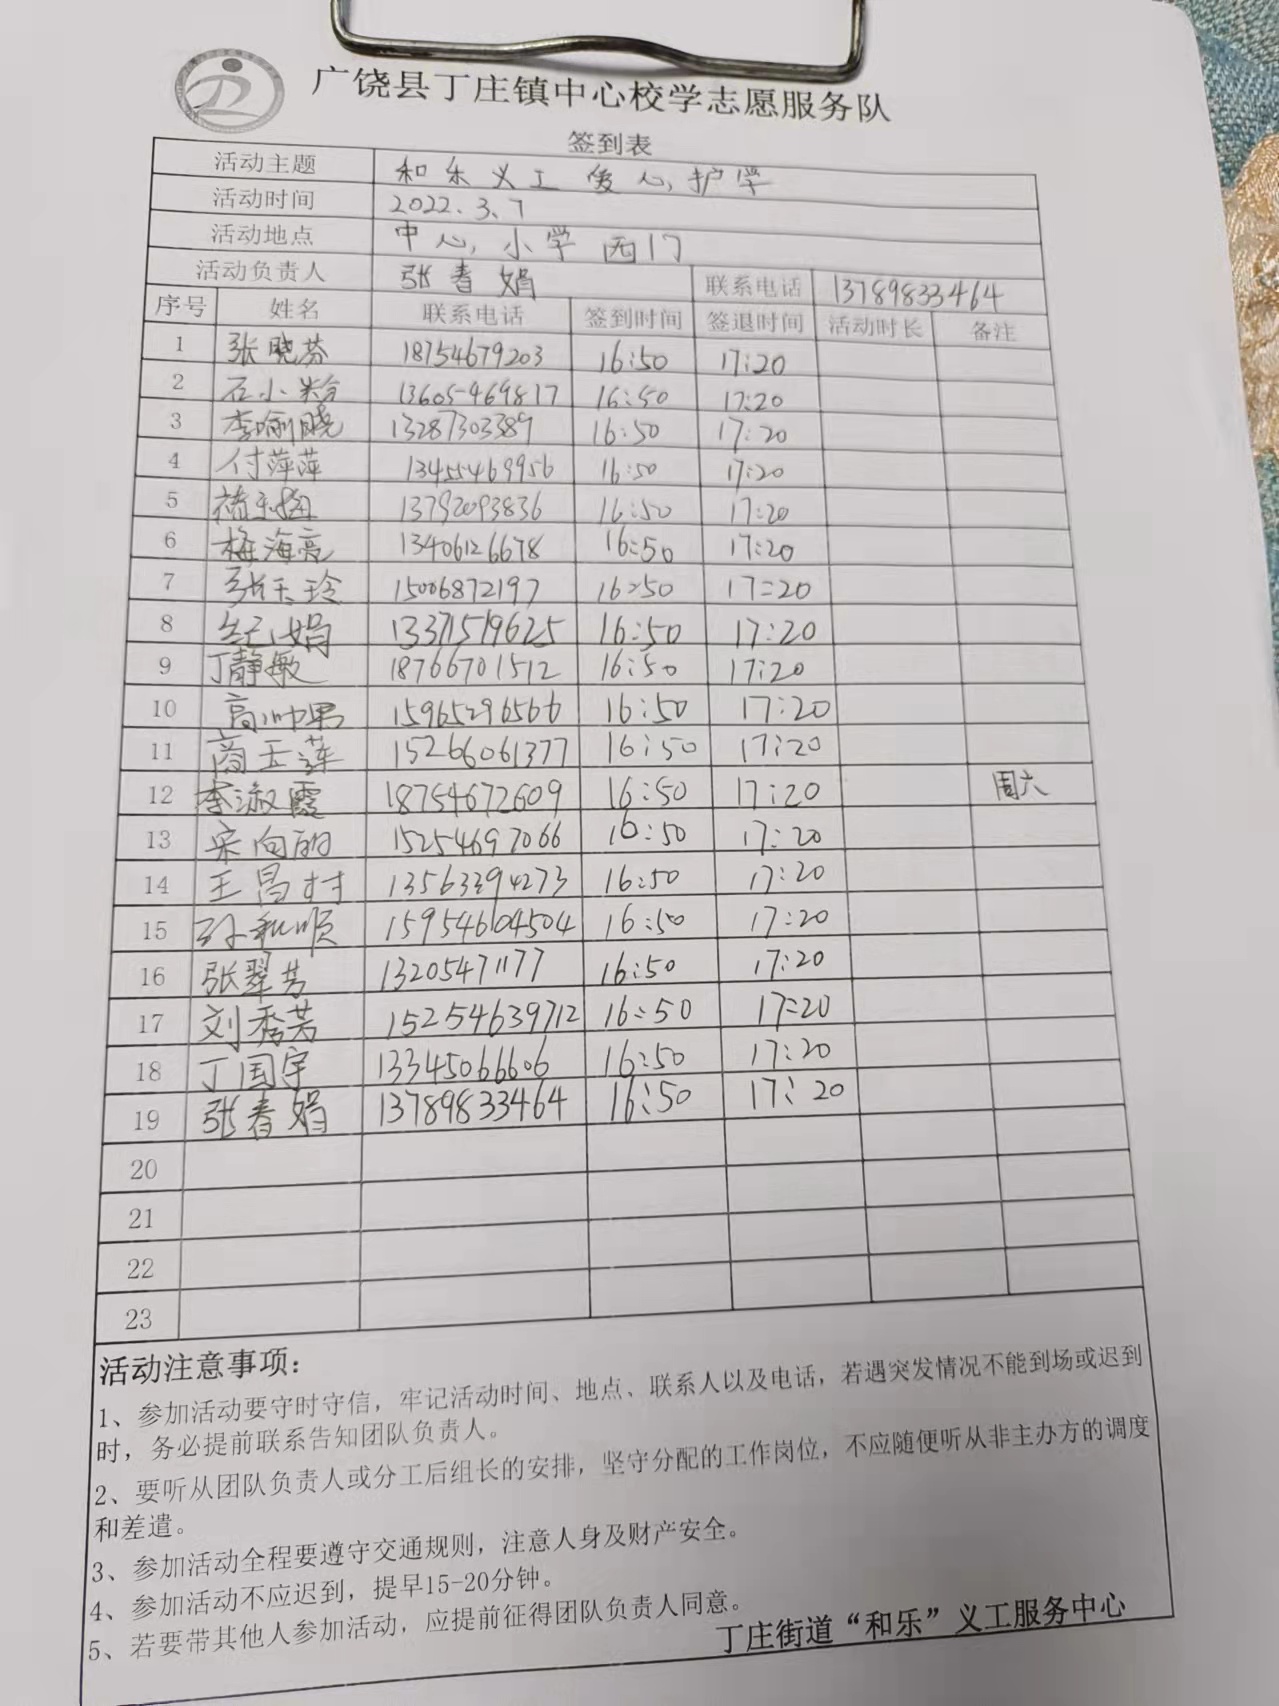 广饶县丁庄镇中心校学志愿服务队
签到表
活动主题 和乐义工 爱心护学
活动时间 2022.3.7
活动地点 中心小学西门
活动负责人 张春娟 联系电话 13789833464
序号 姓名 联系电话 签到时间 签退时间 活动时长 备注
1 张晓芬 18754679203 16:50 17:20
2 石小粉 13605469817 16:50 17:20
3 李喻晓 13287303389 16:50 17:20
4 付萍萍 13455469956 16:50 17:20
5 13792093836 16:50 17:20
6 梅海亮 13406126678 16:50 17:20
7 张玉玲 15006872197 16:50 17:20
8 纪娟 13371519625 16:50 17:20
9 丁静敏 18766701512 16:50 17:20
10 高帅男 15965296566 16:50 17:20
11 商玉莲 15266061377 16:50 17:20
12 李淑霞 18754672609 16:50 17:20 周六
13 宋向丽 15254697066 16:50 17:20
14 王昌村 13563394273 16:50 17:20
15 孙和顺 15954604504 16:50 17:20
16 张翠芳 13205471177 16:50 17:20
17 刘秀芳 15254639712 16:50 17:20
18 丁国宇 13345066606 16:50 17:20
19 张春娟 13789833464 16:50 17:20
20
21
22
23
活动注意事项：
1、参加活动要守时守信，牢记活动时间、地点、联系人以及电话，若遇突发情况不能到场或迟到
时，务必提前联系告知团队负责人。
2、要听从团队负责人或分工后组长的安排，坚守分配的工作岗位，不应随便听从非主办方的调度
和差遣。
3、参加活动全程要遵守交通规则，注意人身及财产安全。
4、参加活动不应迟到，提早15-20分钟。
5、若要带其他人参加活动，应提前征得团队负责人同意。
丁庄街道“和乐”义工服务中心